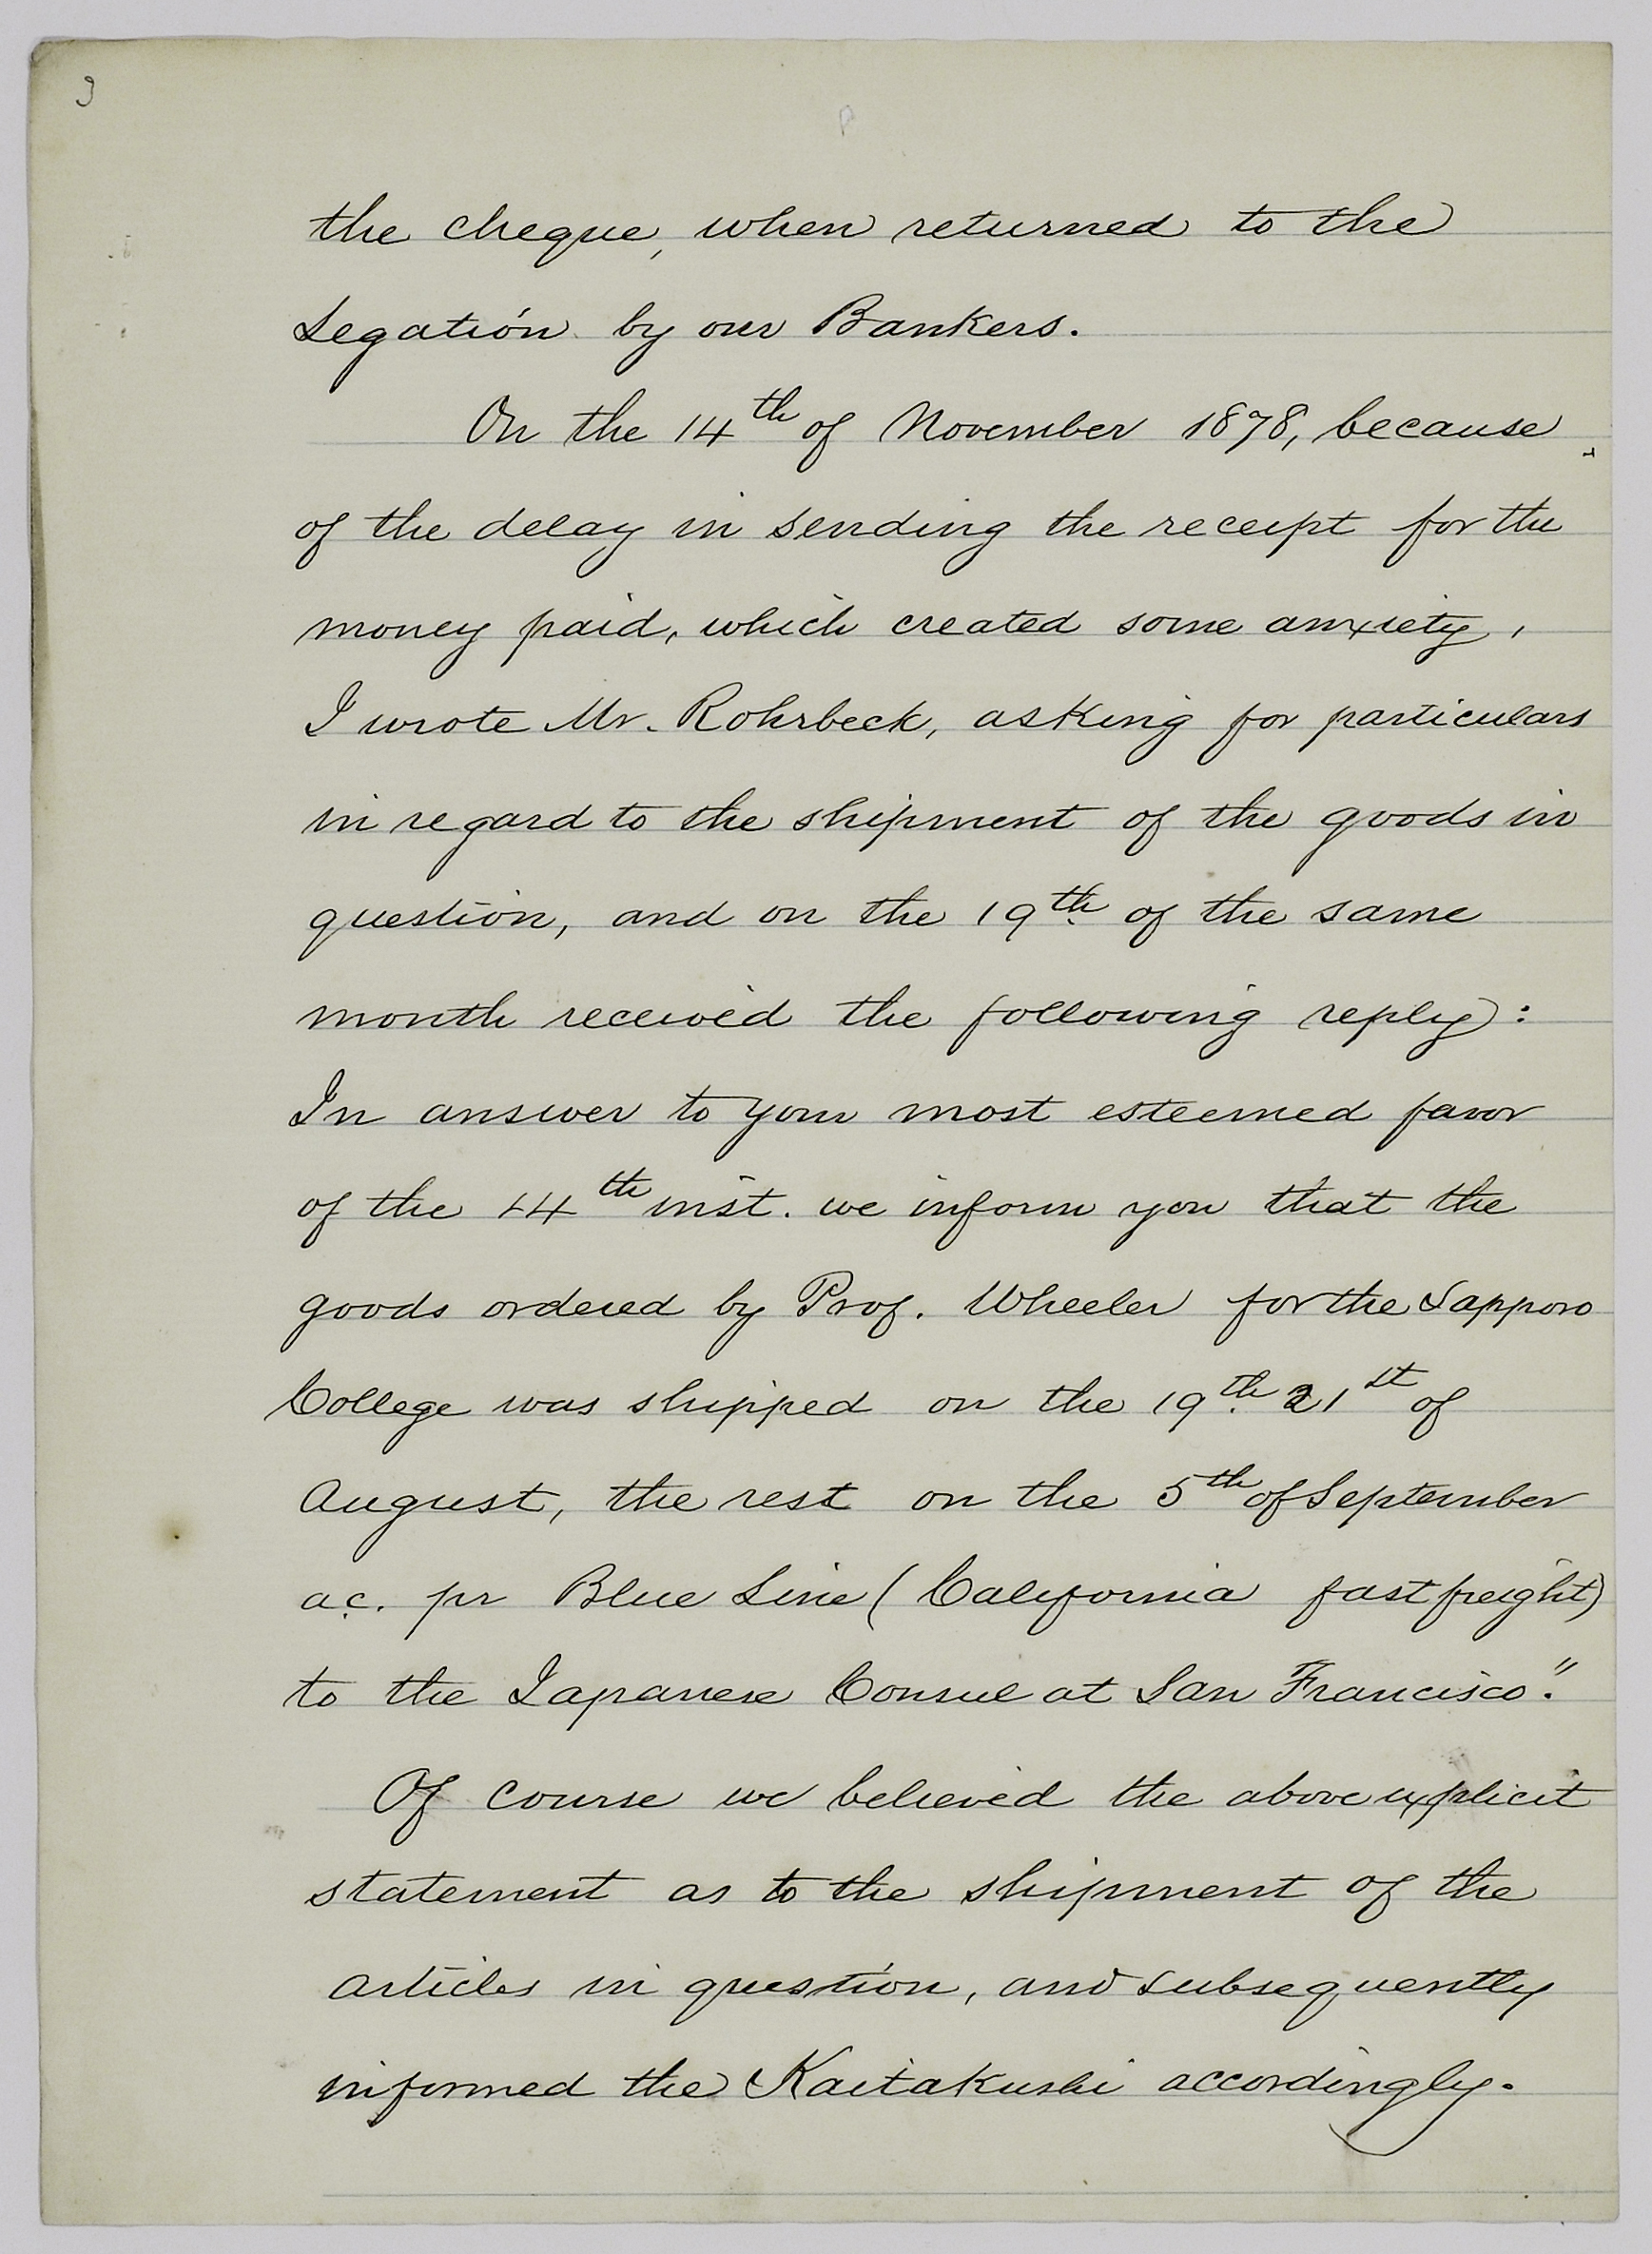 3
the cheque, when returned to the
Legation by our Bankers.
On the 14th of November 1878, because
of the delay in sending the receipt for the
money paid, which created some anxiety,
I wrote Mr. Rohrbeck, asking for particulars
in regard to the shipment of the goods in
question, and on the 19th of the same
month received the following reply:
In answer to your most esteemed favor
of the 14th inst. we inform you that the
goods ordered by Prof. Wheeler for the Sapporo
College was shipped on the 19th 21st of
August, the rest on the 5th of September
a.c. pr Blue Line (California fast freight)
to the Japanese Consul at San Francisco."
Of course we believed the above explicit
statement as to the shipment of the
articles in question, and subsequently
informed the Kaitakushi accordingly.